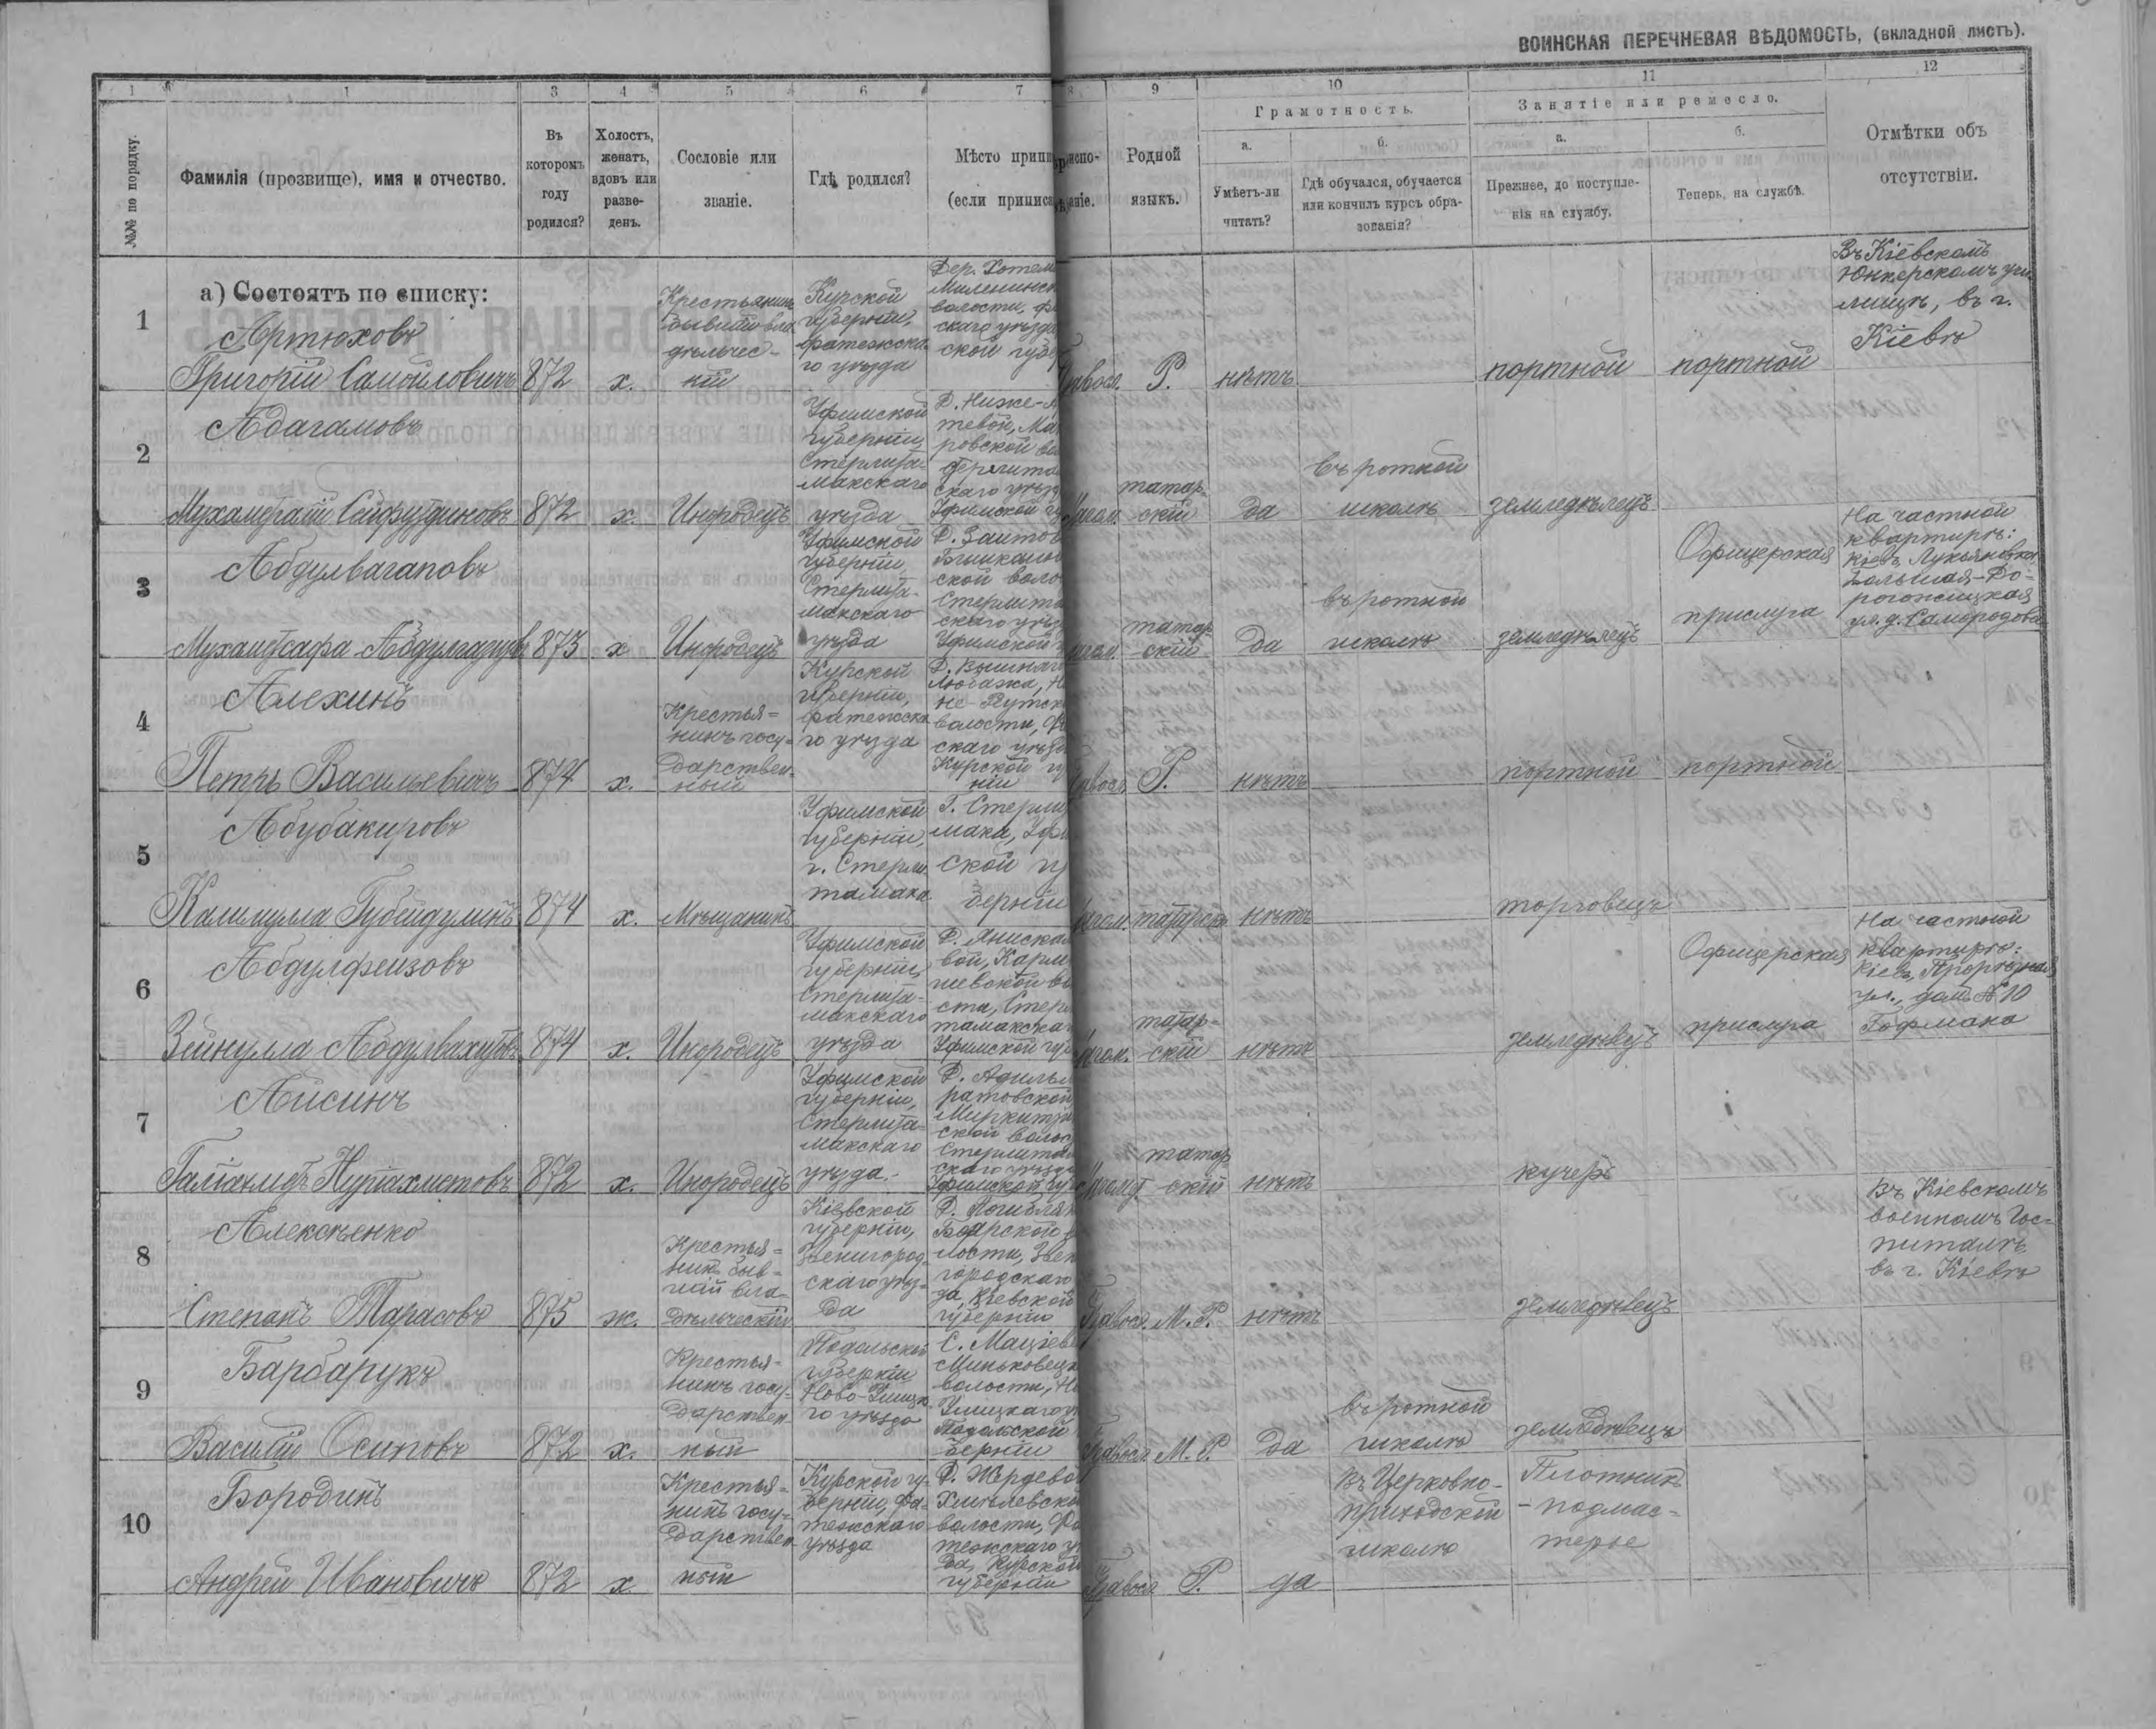 ВОИНСКАЯ ПЕРЕЧНЕВАЯ ВѢДОМОСТЬ, (вкладной листъ).
1 1 3 4 5 6 7 8 9 10 11 12
№№ по порядку.
Фамилія (прозвище), имя и отчество.
Въ которомъ году родился?
Холостъ, женатъ, вдовъ или разве-денъ.
Сословіе или званіе.
Гдѣ родился?
Мѣсто припи
(если приписа
испо-
аніе.
Родной языкъ.
Грамотность.
а.
Умѣетъ-ли читать?
б.
Гдѣ обучался, обучается или кончилъ курсъ обра-зованія?
Занятіе или ремесло.
а.
Прежнее, до поступле-нія на службу.
б.
Теперь, на службѣ.
Отмѣтки объ отсутствіи.
а) Состоятъ по списку:
1
Артюховъ
Григорій Самойловичъ
872
х.
Крестьянинъ
бывшій вла
дѣльчес-
кій
Курской
губерніи,
Фатежска
го уѣзда
Дер. Хотем
Миленинск
волости, Ф
скаго уѣзда
ской губе
Правосл.
Р.
нѣтъ
портной
портной
Въ Кіевскомъ
Юнкерскомъ учи
лищѣ, въ г.
Кіевѣ
2
Адагамовъ
Мухамедгалій Сейфутдиновъ
872
х.
Инородецъ
Уфимской
губерніи,
Стерлита-
макскаго
уѣзда
Д. Ниже-А
тевой, Ма
ровской во
Стерлита
скаго уѣзд
Уфимской гу
татар-
скій
да
въ ротной
школѣ
земледѣлецъ
3
Абдулвагаповъ
873
х
Инородецъ
Уфимской
губерніи,
Стерлита-
макскаго
уѣзда
Д. Заитов
ской воло
Стерлита
скаго уѣз
Уфимской
татар-
скій
да
въ ротной
школѣ
земледѣлецъ
Офицерская
прислуга
На частной
квартирѣ:
Кіевъ, Лукьяновка
Большая-До-
рогожицкая
ул. д. Самородова
4
Алехинъ
Петръ Васильевичъ
874
х.
Крестья-
нинъ госу-
дарствен-
ный
Курской
губерніи,
Фатежска
го уѣзда
не-Реутск
волости, Ф
скаго уѣзда
Курской гу
ніи
Правосл.
Р.
нѣтъ
портной
портной
5
Абубакировъ
Калимулла Губейдулинъ
874
х.
Мѣщанинъ
Уфимской
губерніи,
г. Стерли
тамака
Г. Стерли
мака, Уфи
ской гу
берніи
татарскій
нѣтъ
торговецъ
6
Абдулфеизовъ
Зейнулла Абдулвахитовъ
874
х.
Инородецъ
Уфимской
губерніи,
Стерлита-
макскаго
уѣзда
Д. Яниска
вой, Карм
шевской во
сти, Стер
тамакска
Уфимской гу
татар-
скій
нѣтъ
земледѣлецъ
Офицерская
прислуга
На частной
квартирѣ:
Кіевъ, Прорѣзная
ул., домъ № 10
Гофмана
7
Айсинъ
872
х.
Инородецъ
Уфимской
губерніи,
Стерлита-
макскаго
уѣзда.
Д. Адильм
ратовской
Миркити
ской волос
Стерлита
скаго уѣзда
Уфимской гу
татар
скій
нѣтъ
кучеръ
8
Алексѣенко
Степанъ Тарасовъ
875
ж.
Крестья-
нинъ быв-
шій вла-
дѣльческій
Кіевской
губерніи,
Звенигород-
скаго уѣз-
да
Боярской в
лости, Звен
городскаго
да, Кіевской
губерніи
Правосл.
М. Р.
нѣтъ
земледѣлецъ
Въ Кіевскомъ
военномъ Гос-
питалѣ
въ г. Кіевѣ
9
Барбарукъ
Василій Осиповъ
872
х.
Крестья-
нинъ госу-
дарствен
ный
Подольской
губерніи
Ново-Ушицка
го уѣзда
С. Маціев
Миньковецк
волости, Но
Ушицкаго у
Подольской
берніи
Правосл.
М. Р.
да
въ ротной
школѣ
земледѣлецъ
10
Бородинъ
Андрей Ивановичъ
872
х
Крестья-
нинъ госу-
дарствен
ный
Курской гу-
берніи, Фа-
тежскаго
уѣзда
Д. Жердево
Хмѣлевской
волости, Фа
тежскаго у
да, Курской
губерніи
Правосл.
Р.
да
въ Церковно-
приходской
школѣ
Плотникъ
-подмас-
терье